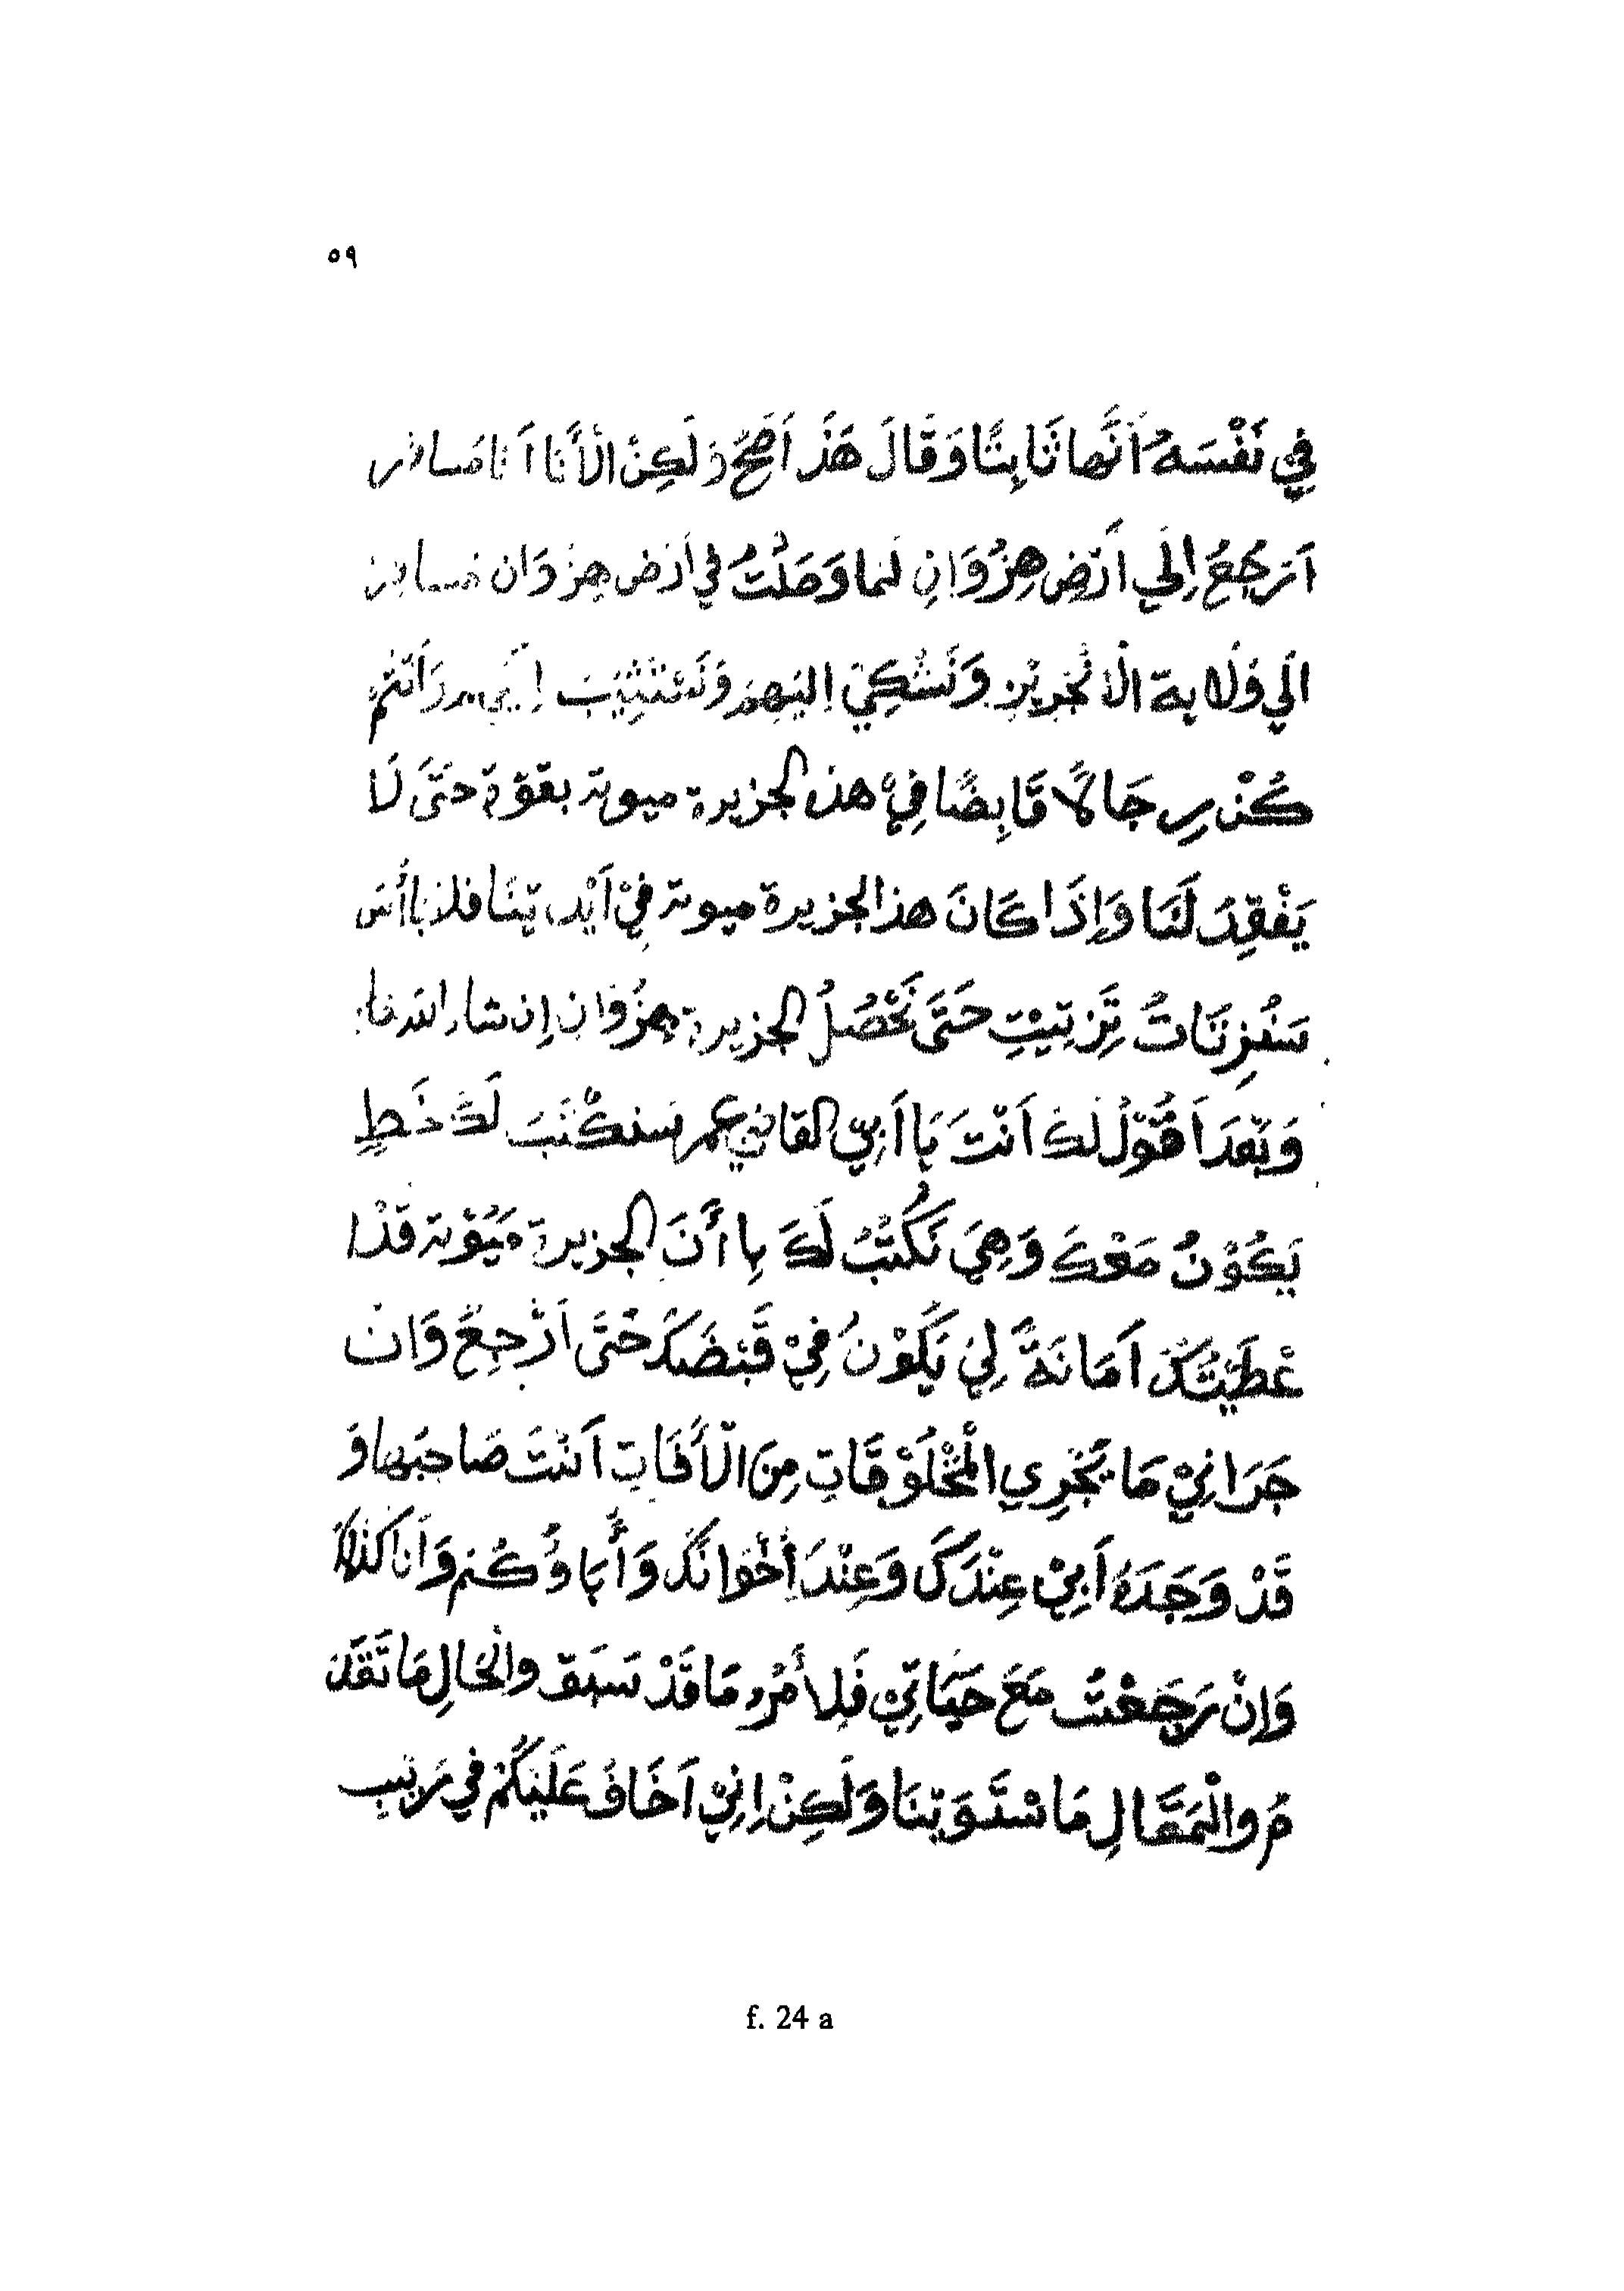 ٥٩
في نَفْسَهُ أَنَّها ثَابِتًا وَقَالَ هَذَ اَصَحٌّ وَلَكِنْ الْأَنَا اَنَا مَسافر
اَرْجِعُ اِلَي اَرْضِ هِزُوَانِ لَمَا وَصَلْتُ في اَرْض هِزْوَان مسافر
الَي وَلَايَة الْاَنْجَرِيْزِ وَنَشْكِيْ اِلَيْهِم وَنَسْتَثِيْبَ وَاَنْتُم
كُنْ رِجَالًا قَابِضًا فِيْ هذ الجزيرة ميوتة بقوّة حَتَّى لَا
يَفْقِدَ لَنَا وَاِذَا كَانَ هذ الجزيرة ميوتة فِيْ اَيْدِيْنَا فلا بأس
تَزِتِيْتِ حَتَّى نَحْصُلُ الجزيرة هِزُوَان اِن شاء الله
وَبَعْدَ اَقُوْلُ لَكَ اَنْتَ يَا اَبِيْ القاضي عمر سَنَكْتُبَ لَكَ خَطٍّ
يَكُوْنُ مَعْكَ وَهِيَ نَكْتُبُ لَكَ بِاَنَّ الجزيرة مَيُوْتة قَدْ ا
عْطَيْتُكَ اَمَانَةً لِيْ يَكُوْنُ فِيْ قَبْضَكَ حَتَّى اَرْجِعَ وَانْ
جَرَانِيْ مَا يَجْرِي الْمَخْلُوْقَاتِ مِنَ الْأَفَاتِ اَنْتَ صَاحِبُها وَ
قَدْ وَجَدَهُ اَبِيْ عِنْدَكَ وَعِنْدَ اَخْوَانَكَ وَأَبَاؤُكُمْ وَاَنَا كَذَلِكَ
وَاِنْ رَجَعْتُ مَعَ حَيَاتِيْ فَلِاَمْرُ مَا قَدْ سَبَق والْحَالِ مَا تَقَدَّ
مُ والْمَقَالِ مَا سْتَوَيْنَا وَلَكِنْ اِنِيْ اَخَافُ عَلَيْكُمْ في رَيْبِ
f. 24 a